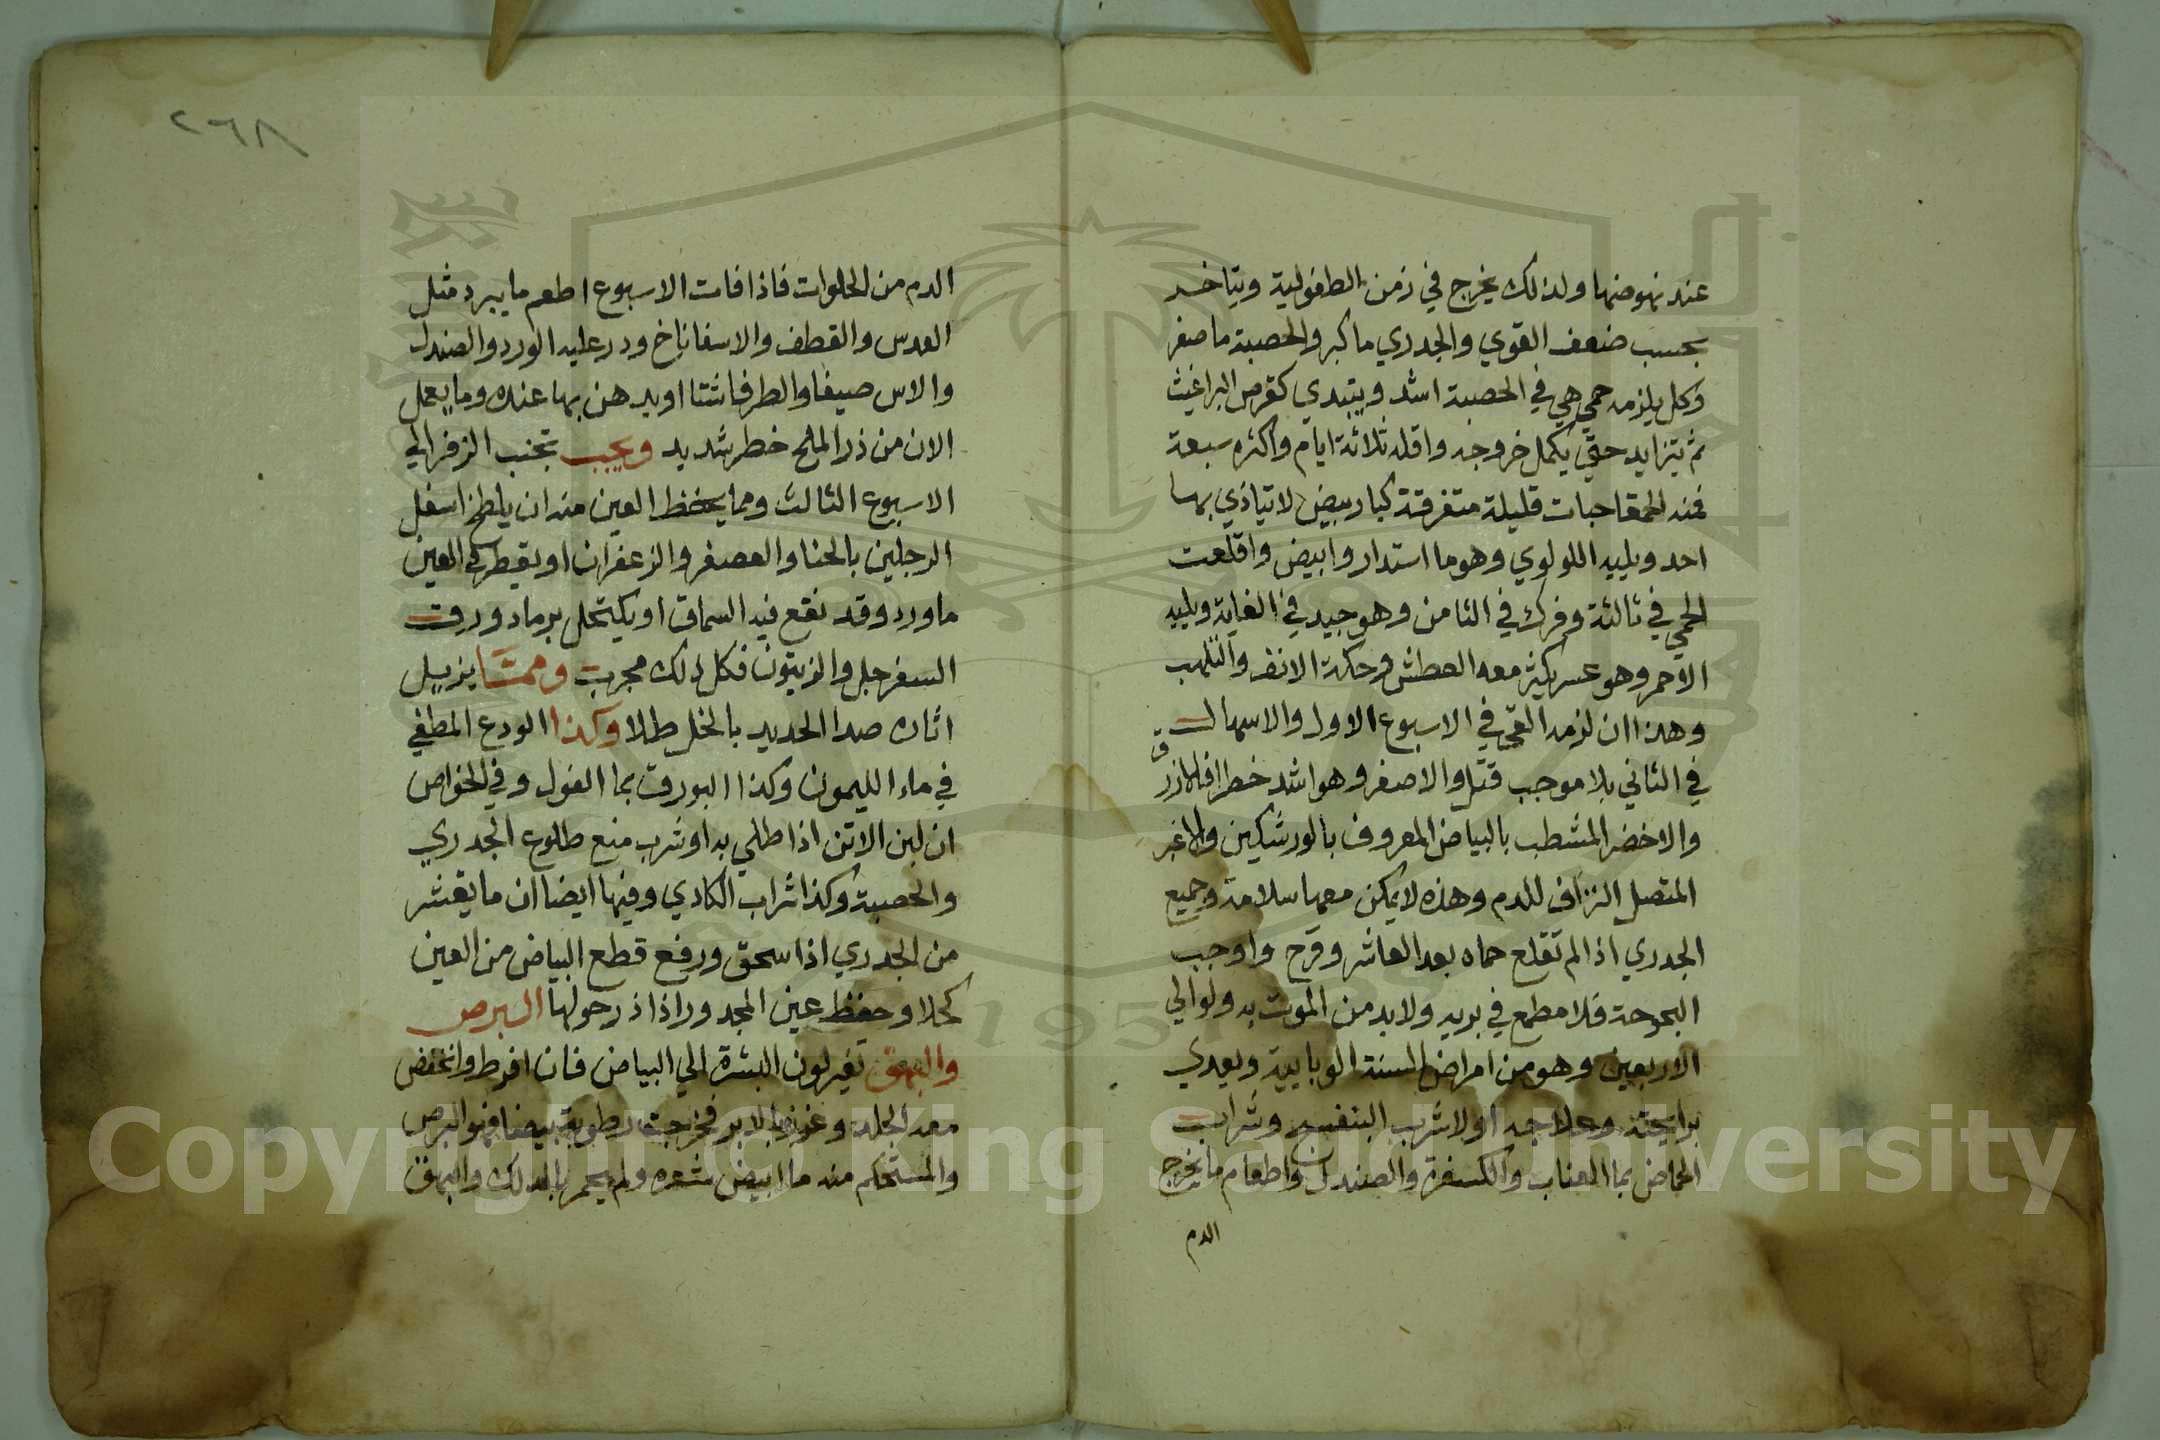 عند نهوضها ولذلك يخرج في زمن الطفولية ويتاخر
بحسب ضعف القوي والجدري ما كبر والحصبة ما صغر
وكل يلزمه حمي هي في الحصبة اشد ويبتدي كقرص البراغيث
ثم يتزايد حتي يكمل خروجه واقله ثلاثة ايام واكثره سبعة
فمنه الحمقا حبات قليلة متفرقة كبار بيض لا يتاذي بها
احد ويليه اللولوي وهو ما استدار وابيض واقلعت
الحمي في ثالثة وفرك في الثامن وهو جيد في الغاية ويليه
الاحمر وهو عسر يكثر معه العطش وحكة الانف والتلهب
وهذا ان لزمه القي في الاسبوع الاول والاسهال
في الثاني بلا موجب قتل والاصفر وهو اشد خطرا فالازرق
والاخضر المشطب بالبياض المعروف بالورشكين والاغبر
المتصل النزاف للدم وهذه لا يمكن معها سلامة وجميع
الجدري اذا لم تقلع حماه بعد العاشر وقرح واوجب
البحوحة فلا مطمع في بريه ولا بد من الموت به ولو الي
الاربعين وهو من امراض السنة الوبايية ويعدي
برايحته وعلاجه اولا شرب البنفسج وشراب
الحماض بما العناب والكسفرة والصندل واطعام ما يخرج
الدم
٢٦٨
الدم من الحلوات فاذا فات الاسبوع اطعم ما يبرد مثل
العدس والقطف والاسفاناخ ودر عليه الورد والصندل
والاس صيفا والطرفا شتا او يدهن بها عنده وما يعمل
الان من ذر الملح خطر شديد ويجب تجنب الزفر الي
الاسبوع الثالث ومما يحفظ العين منه ان يلطخ اسفل
الرجلين بالحنا والعصفر والزعفران او يقطر في العين
ماورد وقد نقع فيه السماق او يكتحل برماد ورق
السفرجل والزيتون فكل ذلك مجرب ومما يزيل
اثاره صدا الحديد بالخل طلا وكذا الودع المطفي
في ماء الليمون وكذا البورق بما الفول وفي الخواص
ان لبن الاتن اذا طلي به او شرب منع طلوع الجدري
والحصبة وكذا شراب الكادي وفيها ايضا ان ما يقشر
من الجدري اذا سحق ورفع قطع البياض من العين
كحلا وحفظ عين المجدور اذا ذر حولها البرص
والبهق تغير لون البشرة الي البياض فان افرط وانخفض
معه الجلد وغرز بالابر فخرجت رطوبة بيضا فهو البرص
والمستحكم منه ما ابيض شعره ولم يحمر بالدلك والبهق
Copyright © King Saud University
1957